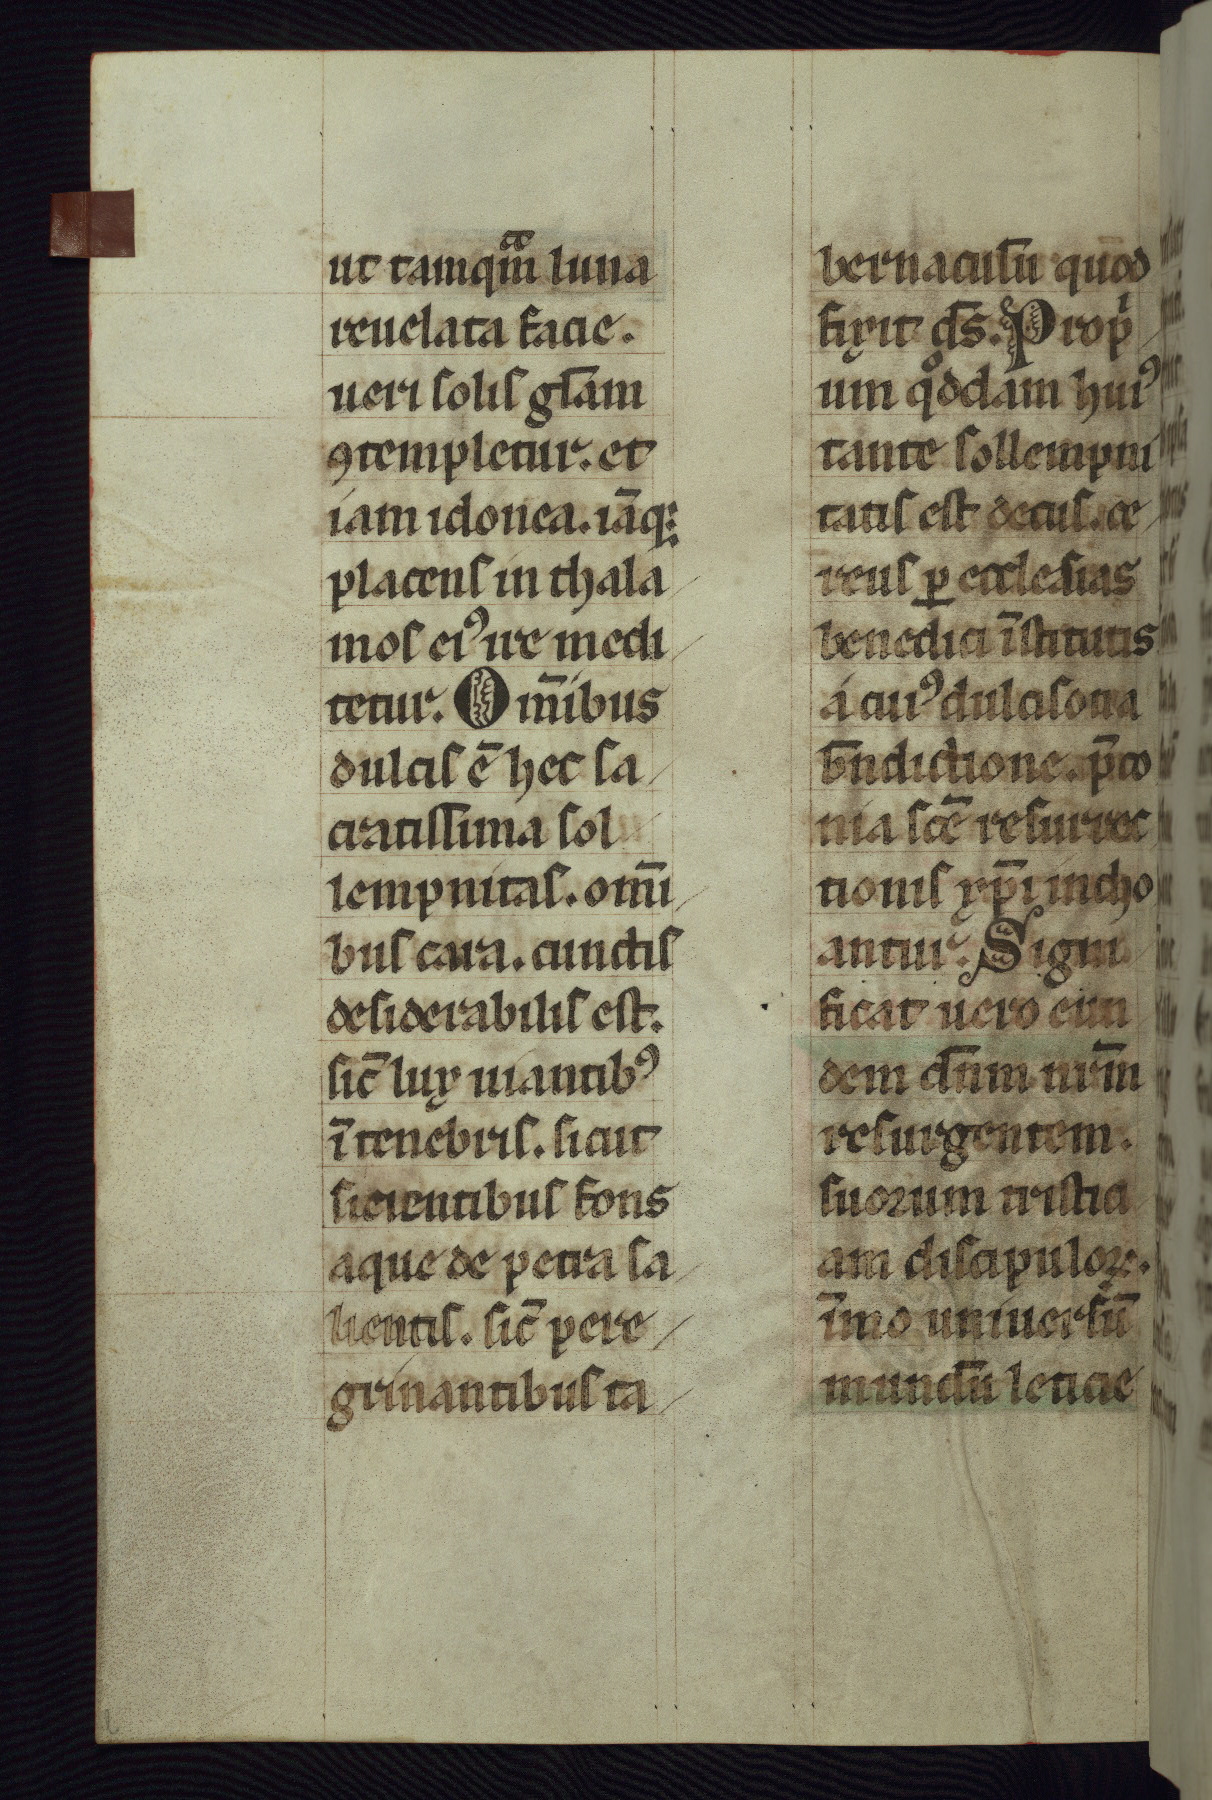 ut tamqᷓm luna
reuelata facie.
ueri solis gl̄am
ꝯtempletur. et
iam idonea. iāq;
placens in thala
mos eiꝰ ire medi
tetur. Om̄ibus
dulcis ē hec sa
cratissima sol
lempnitas. omī
bus cara. cunctis
desiderabilis est.
sic̄ lux uiantibꝰ
ī tenebris. sicut
sicientibus fons
aque de petra sa
lientis. sic̄ pere
grinantibus ta
bernacul̄u quod
fixit d̄s. Propͥ
um qͦddam huiꝰ
tante sollempni
tatis est decus. ce
reus ꝑ ecclesias
benedici īstitutis
a cuiꝰ dulcisona
b̄ndictione. p̄co
nia sc̄e resurrec
tionis xp̄i incho
antur. Signi
ficat uero eun
dem dn̄m nr̄m
resurgentem.
suorum tristici
am discipuloꝝ.
īmo uniuersū
mundū leticie